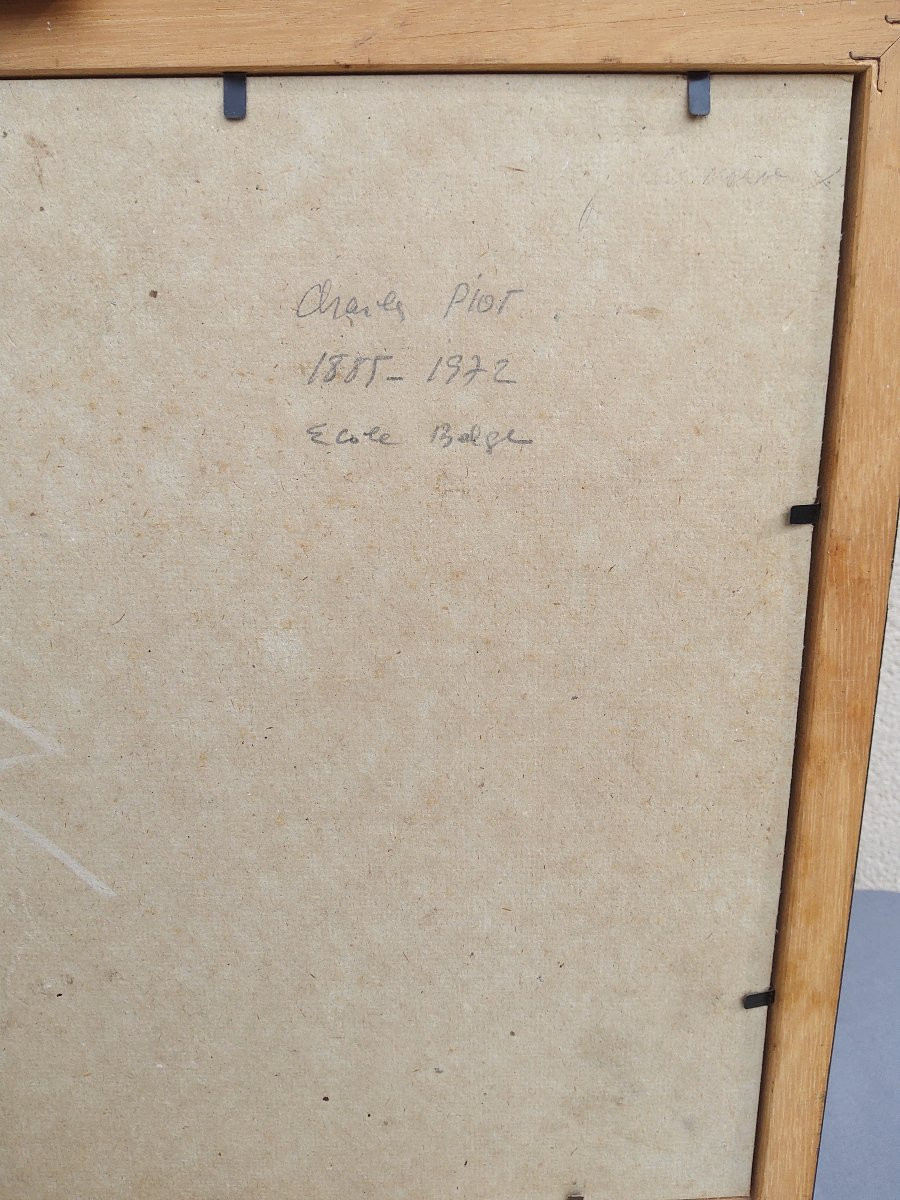 Charles Piot
1885-1972
Ecole Belge